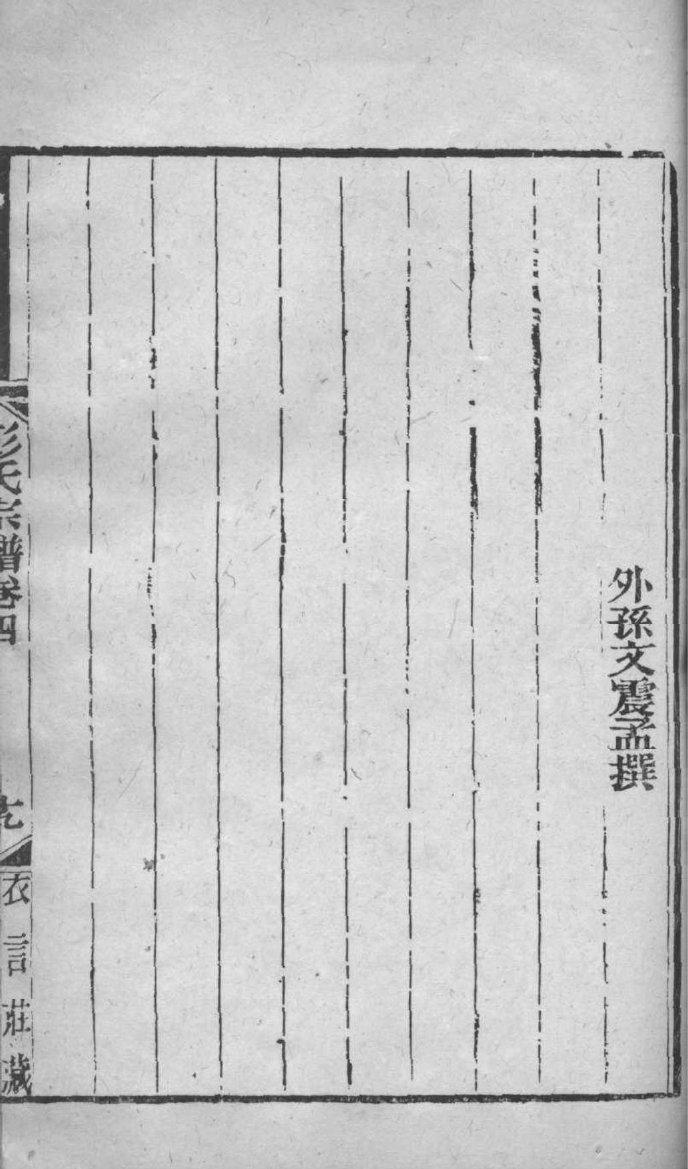 外孫文震孟撰
彭氏宗譜卷四
衣言莊藏